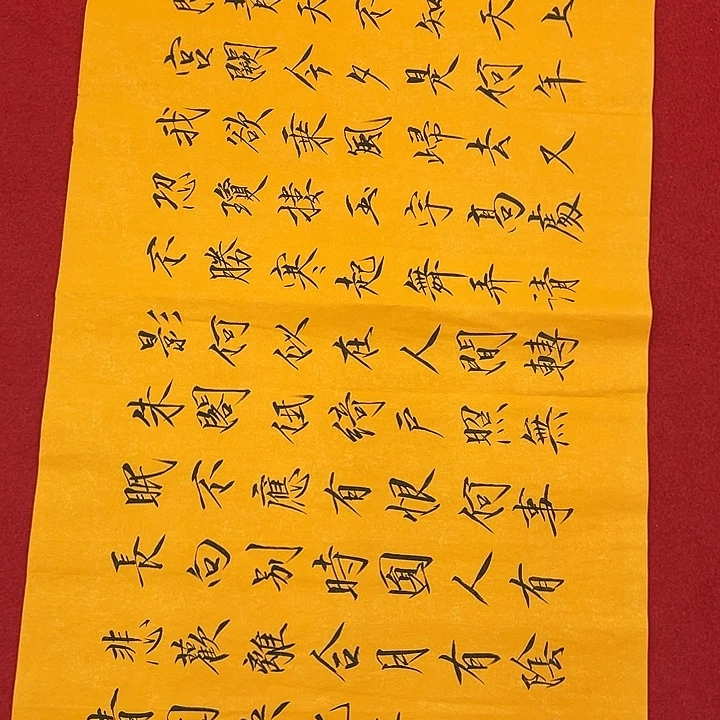 青天不知天上
宮闕今夕是何年
我欲乘風歸去又
恐瓊樓玉宇高處
不勝寒起舞弄清
影何似在人間轉
朱閣低綺戶照無
眠不應有恨何事
長向別時圓人有
悲歡離合月有陰